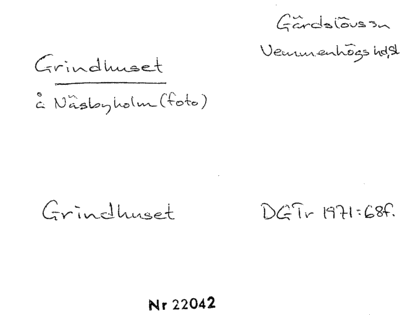 Gärdslövs sn
Vemmenhögs hd, Sk
Grindhuset
å Näsbyholm (foto)
Grindhuset
DGTr 1971:68f.
Nr 22042